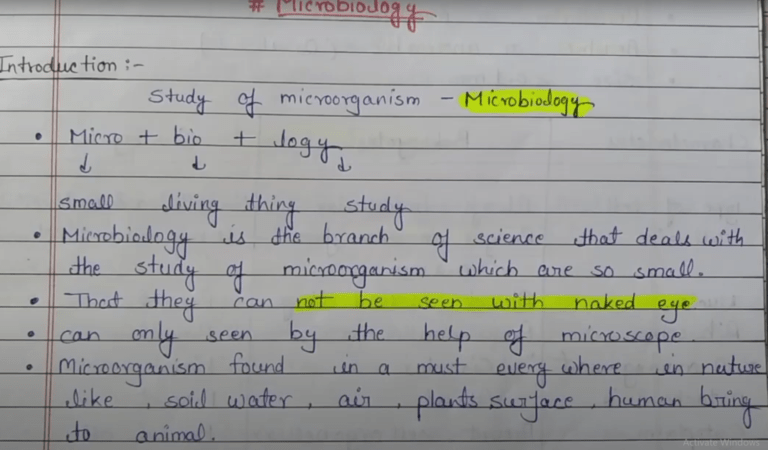 # Microbiology
Introduction :-
Study of microorganism - Microbiology
• Micro + bio + logy
↓ ↓ ↓
small living thing study
• Microbiology is the branch of science that deals with
the study of microorganism which are so small.
• That they can not be seen with naked eye
• can only seen by the help of microscope.
• Microorganism found in a must every where in nature
like , soil water , air , plants surface , human bring
to animal.
Activate Windows